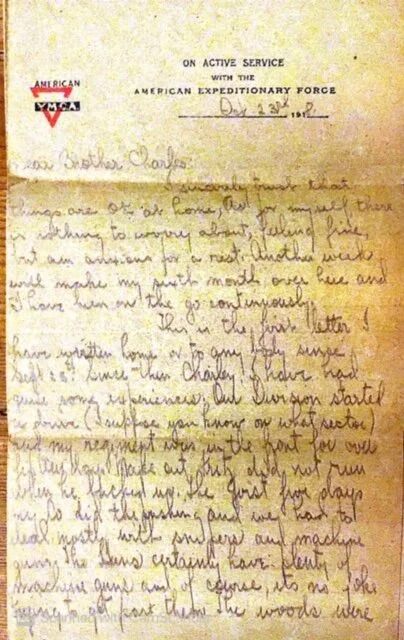 AMERICAN
YMCA
ON ACTIVE SERVICE
WITH THE
AMERICAN EXPEDITIONARY FORCE
Oct 23rd 1918
Dear Brother Charles:
I sincerely trust that
things are OK at home, As for myself there
is nothing to worry about, feeling fine,
but am anxious for a rest. Another week
will make my sixth month over here and
I have been on the go continuously.
This is the first letter I
have written home or to any body since
Sept 23. Since then Charley, I have had
quite some experiences. Our Division started
a drive (I suppose you know on what sector)
and my regiment was in the front for over
days. did not run
when he backed up. The first five days
my Co did the pushing and we had to
deal mostly with snipers and machine
guns. The Huns certainly have plenty of
machine guns and of course, its no joke
trying to get past them. The woods were